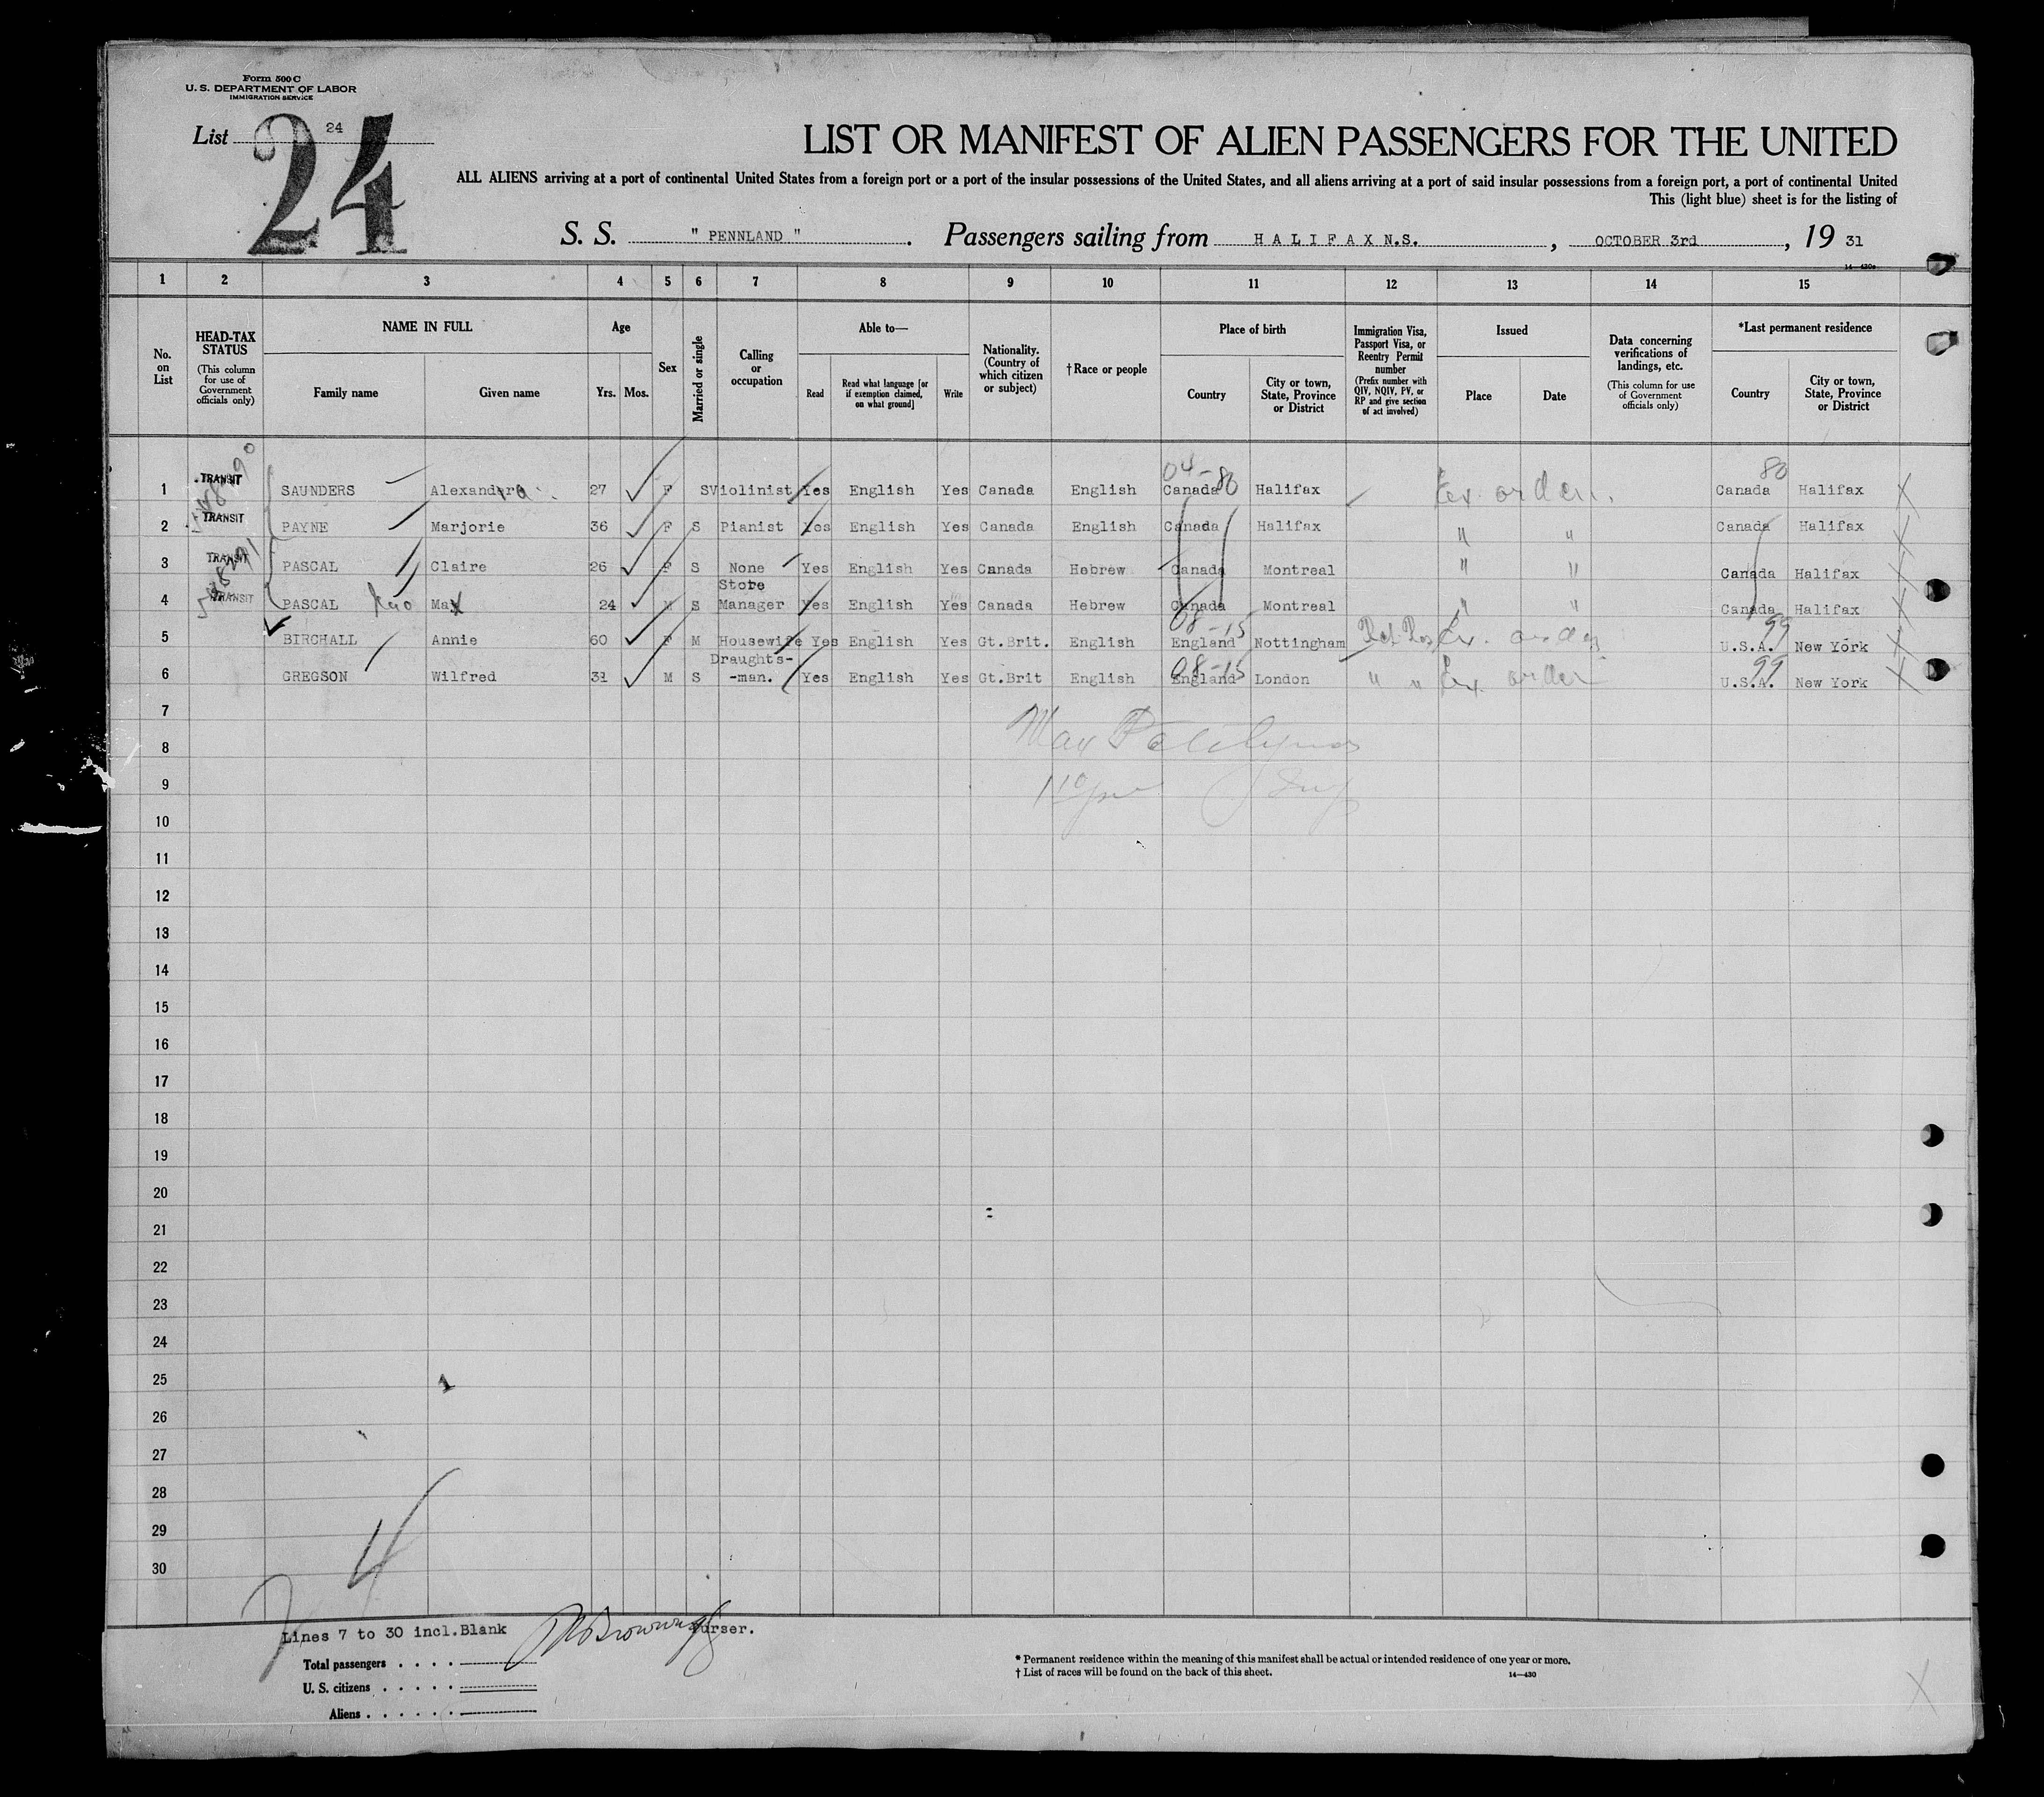 Form 500 C
U. S. DEPARTMENT OF LABOR
IMMIGRATION SERVICE
List 24
24
LIST OR MANIFEST OF ALIEN PASSENGERS FOR THE UNITED
ALL ALIENS arriving at a port of continental United States from a foreign port or a port of the insular possessions of the United States, and all aliens arriving at a port of said insular possessions from a foreign port, a port of continental United
This (light blue) sheet is for the listing of
S. S. " PENNLAND ". Passengers sailing from HALIFAX N.S., OCTOBER 3rd, 19 31
14—430a
1 2 3 4 5 6 7 8 9 10 11 12 13 14 15
No. on List
HEAD-TAX STATUS
(This column for use of Government officials only)
NAME IN FULL
Family name
Given name
Age
Yrs. Mos.
Sex
Married or single
Calling or occupation
Able to—
Read
Read what language [or if exemption claimed, on what ground]
Write
Nationality. (Country of which citizen or subject)
† Race or people
Place of birth
Country
City or town, State, Province or District
Immigration Visa, Passport Visa, or Reentry Permit number
(Prefix number with QIV, NQIV, PV, or RP and give section of act involved)
Issued
Place
Date
Data concerning verifications of landings, etc.
(This column for use of Government officials only)
*Last permanent residence
Country
City or town, State, Province or District
04-80 80
1 TRANSIT SAUNDERS Alexandra 27 F S Violinist Yes English Yes Canada English Canada Halifax Ex. order. Canada Halifax
2 TRANSIT PAYNE Marjorie 36 F S Pianist Yes English Yes Canada English Canada Halifax " " Canada Halifax
3 TRANSIT PASCAL Claire 26 F S None Yes English Yes Canada Hebrew Canada Montreal " " Canada Halifax
4 TRANSIT PASCAL Max 24 M S Store Manager Yes English Yes Canada Hebrew Canada Montreal " " Canada Halifax
08-15 99
5 BIRCHALL Annie 60 F M Housewife Yes English Yes Gt.Brit. English England Nottingham Ex. order U.S.A. New York
08-15 99
6 GREGSON Wilfred 31 M S Draughts-
-man. Yes English Yes Gt.Brit English England London " " Ex. order U.S.A. New York
7
Max
8
9
10
11
12
13
14
15
16
17
18
19
20
21
22
23
24
25
26
27
28
29
30
4
Lines 7 to 30 incl. Blank Purser.
Total passengers
U. S. citizens
Aliens
* Permanent residence within the meaning of this manifest shall be actual or intended residence of one year or more.
† List of races will be found on the back of this sheet. 14—430